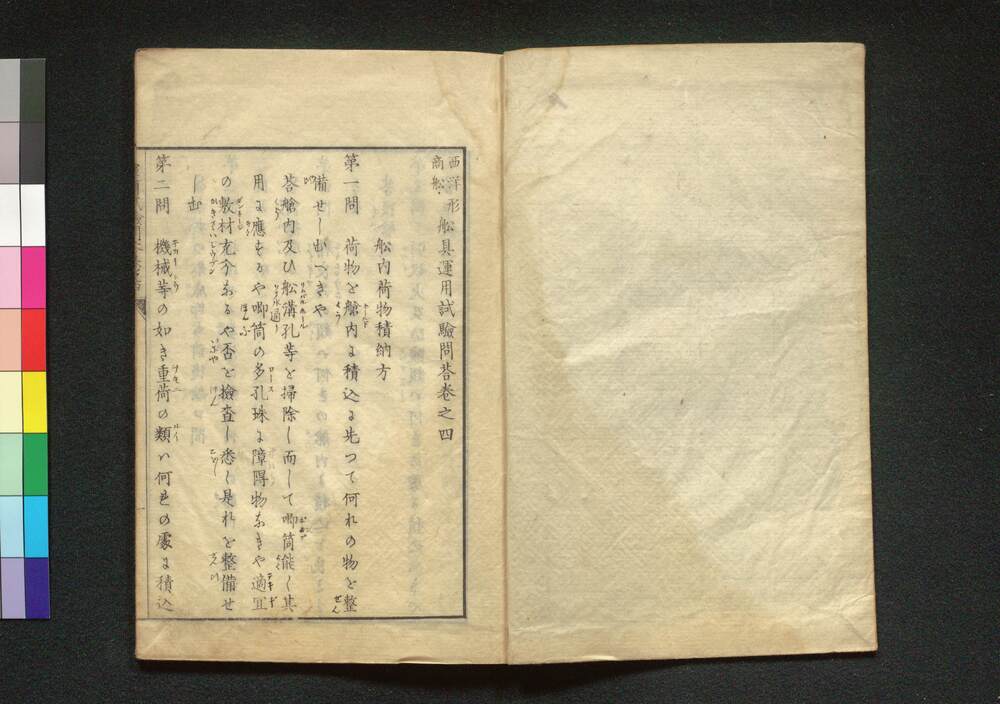 西洋形商舩 舩具運用試驗問荅卷之四
舩内荷物積納方
第一問 荷物を艙内に積込に先つて何れの物を整
備せしむべきや
荅艙内及ひ舩溝孔等を掃除し而して喞筒能く其
用に應ずるや喞筒の多孔珠に障碍物なきや適宜
の敷材充分なるや否を檢査し悉く是れを整備せ
しむ
第二問 機械等の如き重荷の類ハ何れの處に積込